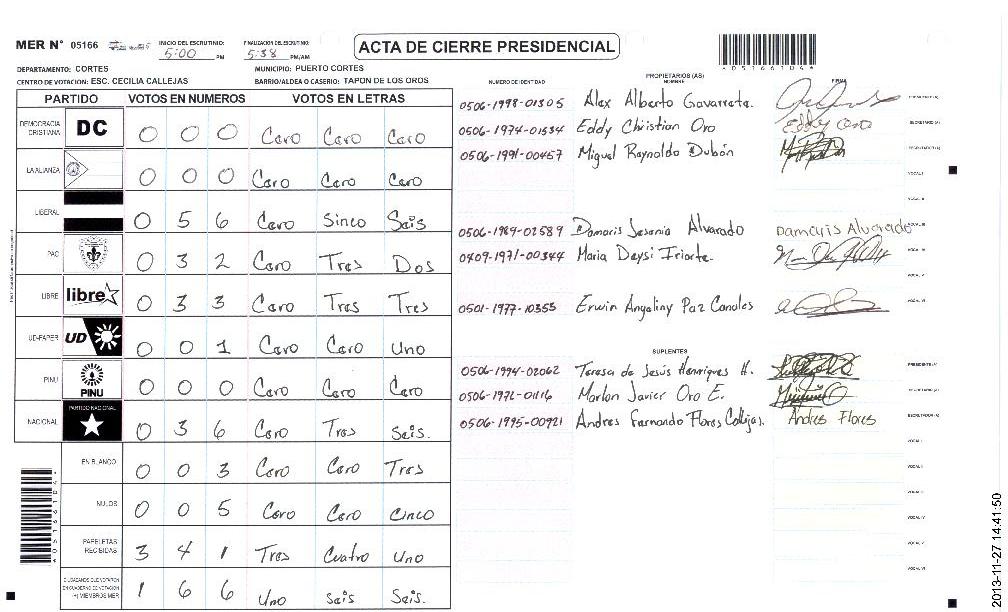 MER N° 05166 INICIO DEL ESCRUTINIO: 5:00 PM FINALIZACION DEL ESCRUTINIO: 5:38 PM/AM ACTA DE CIERRE PRESIDENCIAL
DEPARTAMENTO: CORTES MUNICIPIO: PUERTO CORTES
CENTRO DE VOTACION: ESC. CECILIA CALLEJAS BARRIO/ALDEA O CASERIO: TAPON DE LOS OROS
PARTIDO VOTOS EN NUMEROS VOTOS EN LETRAS
DEMOCRACIA CRISTIANA DC 0 0 0 Cero Cero Cero
LA ALIANZA 0 0 0 Cero Cero Cero
LIBERAL 0 5 6 Cero Sinco Seis
PAC 0 3 2 Cero Tres Dos
LIBRE libre 0 3 3 Cero Tres Tres
UD-FAPER UD 0 0 1 Cero Cero Uno
PINU PINU 0 0 0 Cero Cero Cero
NACIONAL PARTIDO NACIONAL 0 3 6 Cero Tres Seis.
EN BLANCO 0 0 3 Cero Cero Tres
NULOS 0 0 5 Cero Cero Cinco
PAPELETAS RECIBIDAS 3 4 1 Tres Cuatro Uno
CIUDADANOS QUE VOTARON EN CUADERNO DE VOTACION (+) MIEMBROS MER 1 6 6 Uno seis Seis.
NUMERO DE IDENTIDAD PROPIETARIOS (AS) NOMBRE FIRMA
A051661D4A
0506-1998-01305 Alex Alberto Gavarrete. PRESIDENTE (A)
0506-1974-01534 Eddy Christian Oro Eddy Oro SECRETARIO (A)
0506-1991-00457 Miguel Reynaldo Dubón ESCRUTADOR (A)
VOCAL I
VOCAL II
0506-1984-02589 Damaris Jesenia Alvarado Damaris Alvarado VOCAL III
0409-1971-00344 Maria Deysi Iriarte. VOCAL IV
VOCAL V
0501-1977-10355 Erwin Angaliny Paz Canales VOCAL VI
SUPLENTES
0506-1994-02062 Teresa de Jesús Henriquez H. PRESIDENTE (A)
0506-1971-01116 Marlon Javier Oro E. SECRETARIO (A)
0506-1995-00921 Andres Fernando Flores Callejas. Andres Flores ESCRUTADOR (A)
VOCAL I
VOCAL II
VOCAL III
VOCAL IV
VOCAL V
VOCAL VI
A051661D4A
2013-11-27 14:41:50